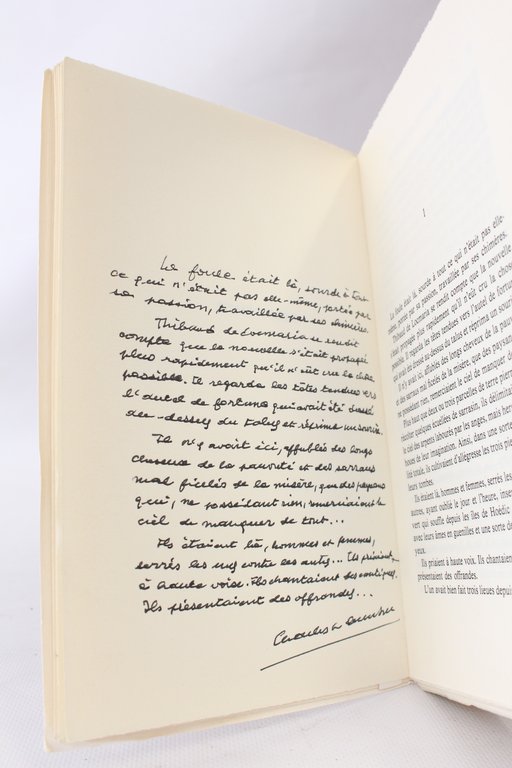 La foule était là, sourde à tout
ce qui n'était pas elle-même, portée par
sa passion, travaillée par ses chimères.
Thibaud de Locmaria se rendit
compte que la nouvelle s'était propagée
plus rapidement qu'il n'eût cru la chose
possible. Il regarda les têtes tendues vers
l'autel de fortune qui avait été dressé
au-dessus du talus et réprima un sourire.
Il n'y avait ici, affublés des longs
cheveux de la pauvreté et des sarraus
mal ficelés de la misère, que des paysans
qui, ne possédant rien, remerciaient le
ciel de manquer de tout...
Ils étaient là, hommes et femmes,
serrés les uns contre les autres... Ils priaient
à haute voix. Ils chantaient des cantiques.
Ils présentaient des offrandes...
1
La foule était là, sourde à tout ce qui n'était pas elle-
même, portée par sa passion, travaillée par ses chimères.
Thibaud de Locmaria se rendit compte que la nouvelle
s'était propagée plus rapidement qu'il n'eût cru la chose
possible. Il regarda les têtes tendues vers l'autel de fortune
dressé au-dessus du talus et réprima un
Il n'y avait ici, affublés des longs cheveux de la
des sarraus mal ficelés de la misère, que des paysans
ne possédant rien, remerciaient le ciel de manquer de
Plus haut que deux ou trois parcelles de terre
récolter quelques écuelles de sarrasin, ils
le ciel des arpents labourés par les anges, mais
houes de leur imagination. Ainsi, dans une sorte
totale, ils cultivaient d'allégresse les trois
leurs tombes.
Ils étaient là, hommes et femmes, serrés les
autres, ayant oublié le jour et l'heure,
vert qui souffle depuis les îles de Hoëdic
avec leurs âmes en guenilles et une sorte de
yeux.
Ils priaient à haute voix. Ils chantaient
présentaient des offrandes.
L'un avait bien fait trois lieues depuis